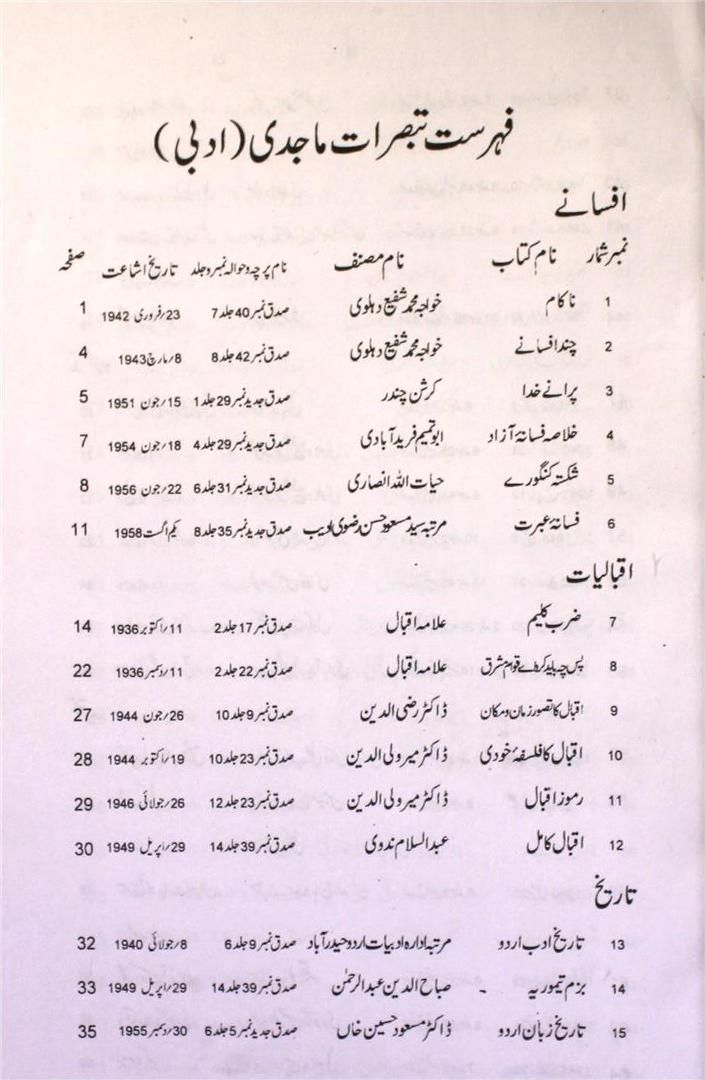 فہرست تبصرات ماجدی (ادبی)
افسانے
نمبر شمار نام کتاب نام مصنف نام پرچہ و حوالہ نمبر و جلد تاریخ اشاعت صفحہ
1 ناکام خواجہ محمد شفیع دہلوی صدق نمبر 40 جلد 7 23/فروری 1942 1
2 چند افسانے خواجہ محمد شفیع دہلوی صدق نمبر 42 جلد 8 8/مارچ 1943 4
3 پرانے خدا کرشن چندر صدق جدید نمبر 29 جلد 1 15/جون 1951 5
4 خلاصہ فسانۂ آزاد ابو تمیم فرید آبادی صدق جدید نمبر 29 جلد 4 18/جون 1954 7
5 شکستہ کنگورے حیات اللہ انصاری صدق جدید نمبر 31 جلد 6 22/جون 1956 8
6 فسانۂ عبرت مرتبہ سید مسعود حسن رضوی ادیب صدق جدید نمبر 35 جلد 8 یکم اگست 1958 11
اقبالیات
7 ضرب کلیم علامہ اقبال صدق نمبر 17 جلد 2 11/اکتوبر 1936 14
8 پس چہ باید کرد اے قوام شرق علامہ اقبال صدق نمبر 22 جلد 2 11/دسمبر 1936 22
9 اقبال کا تصور زمان و مکان ڈاکٹر رضی الدین صدق نمبر 9 جلد 10 26/جون 1944 27
10 اقبال کا فلسفۂ خودی ڈاکٹر میر ولی الدین صدق نمبر 23 جلد 10 19/اکتوبر 1944 28
11 رموز اقبال ڈاکٹر میر ولی الدین صدق نمبر 23 جلد 12 26/جولائی 1946 29
12 اقبال کامل عبدالسلام ندوی صدق نمبر 39 جلد 14 29/اپریل 1949 30
تاریخ
13 تاریخ ادب اردو مرتبہ ادارہ ادبیات اردو حیدرآباد صدق نمبر 9 جلد 6 8/جولائی 1940 32
14 بزم تیموریہ صباح الدین عبدالرحمٰن صدق نمبر 39 جلد 14 29/اپریل 1949 33
15 تاریخ زبان اردو ڈاکٹر مسعود حسین خاں صدق جدید نمبر 5 جلد 6 30/دسمبر 1955 35